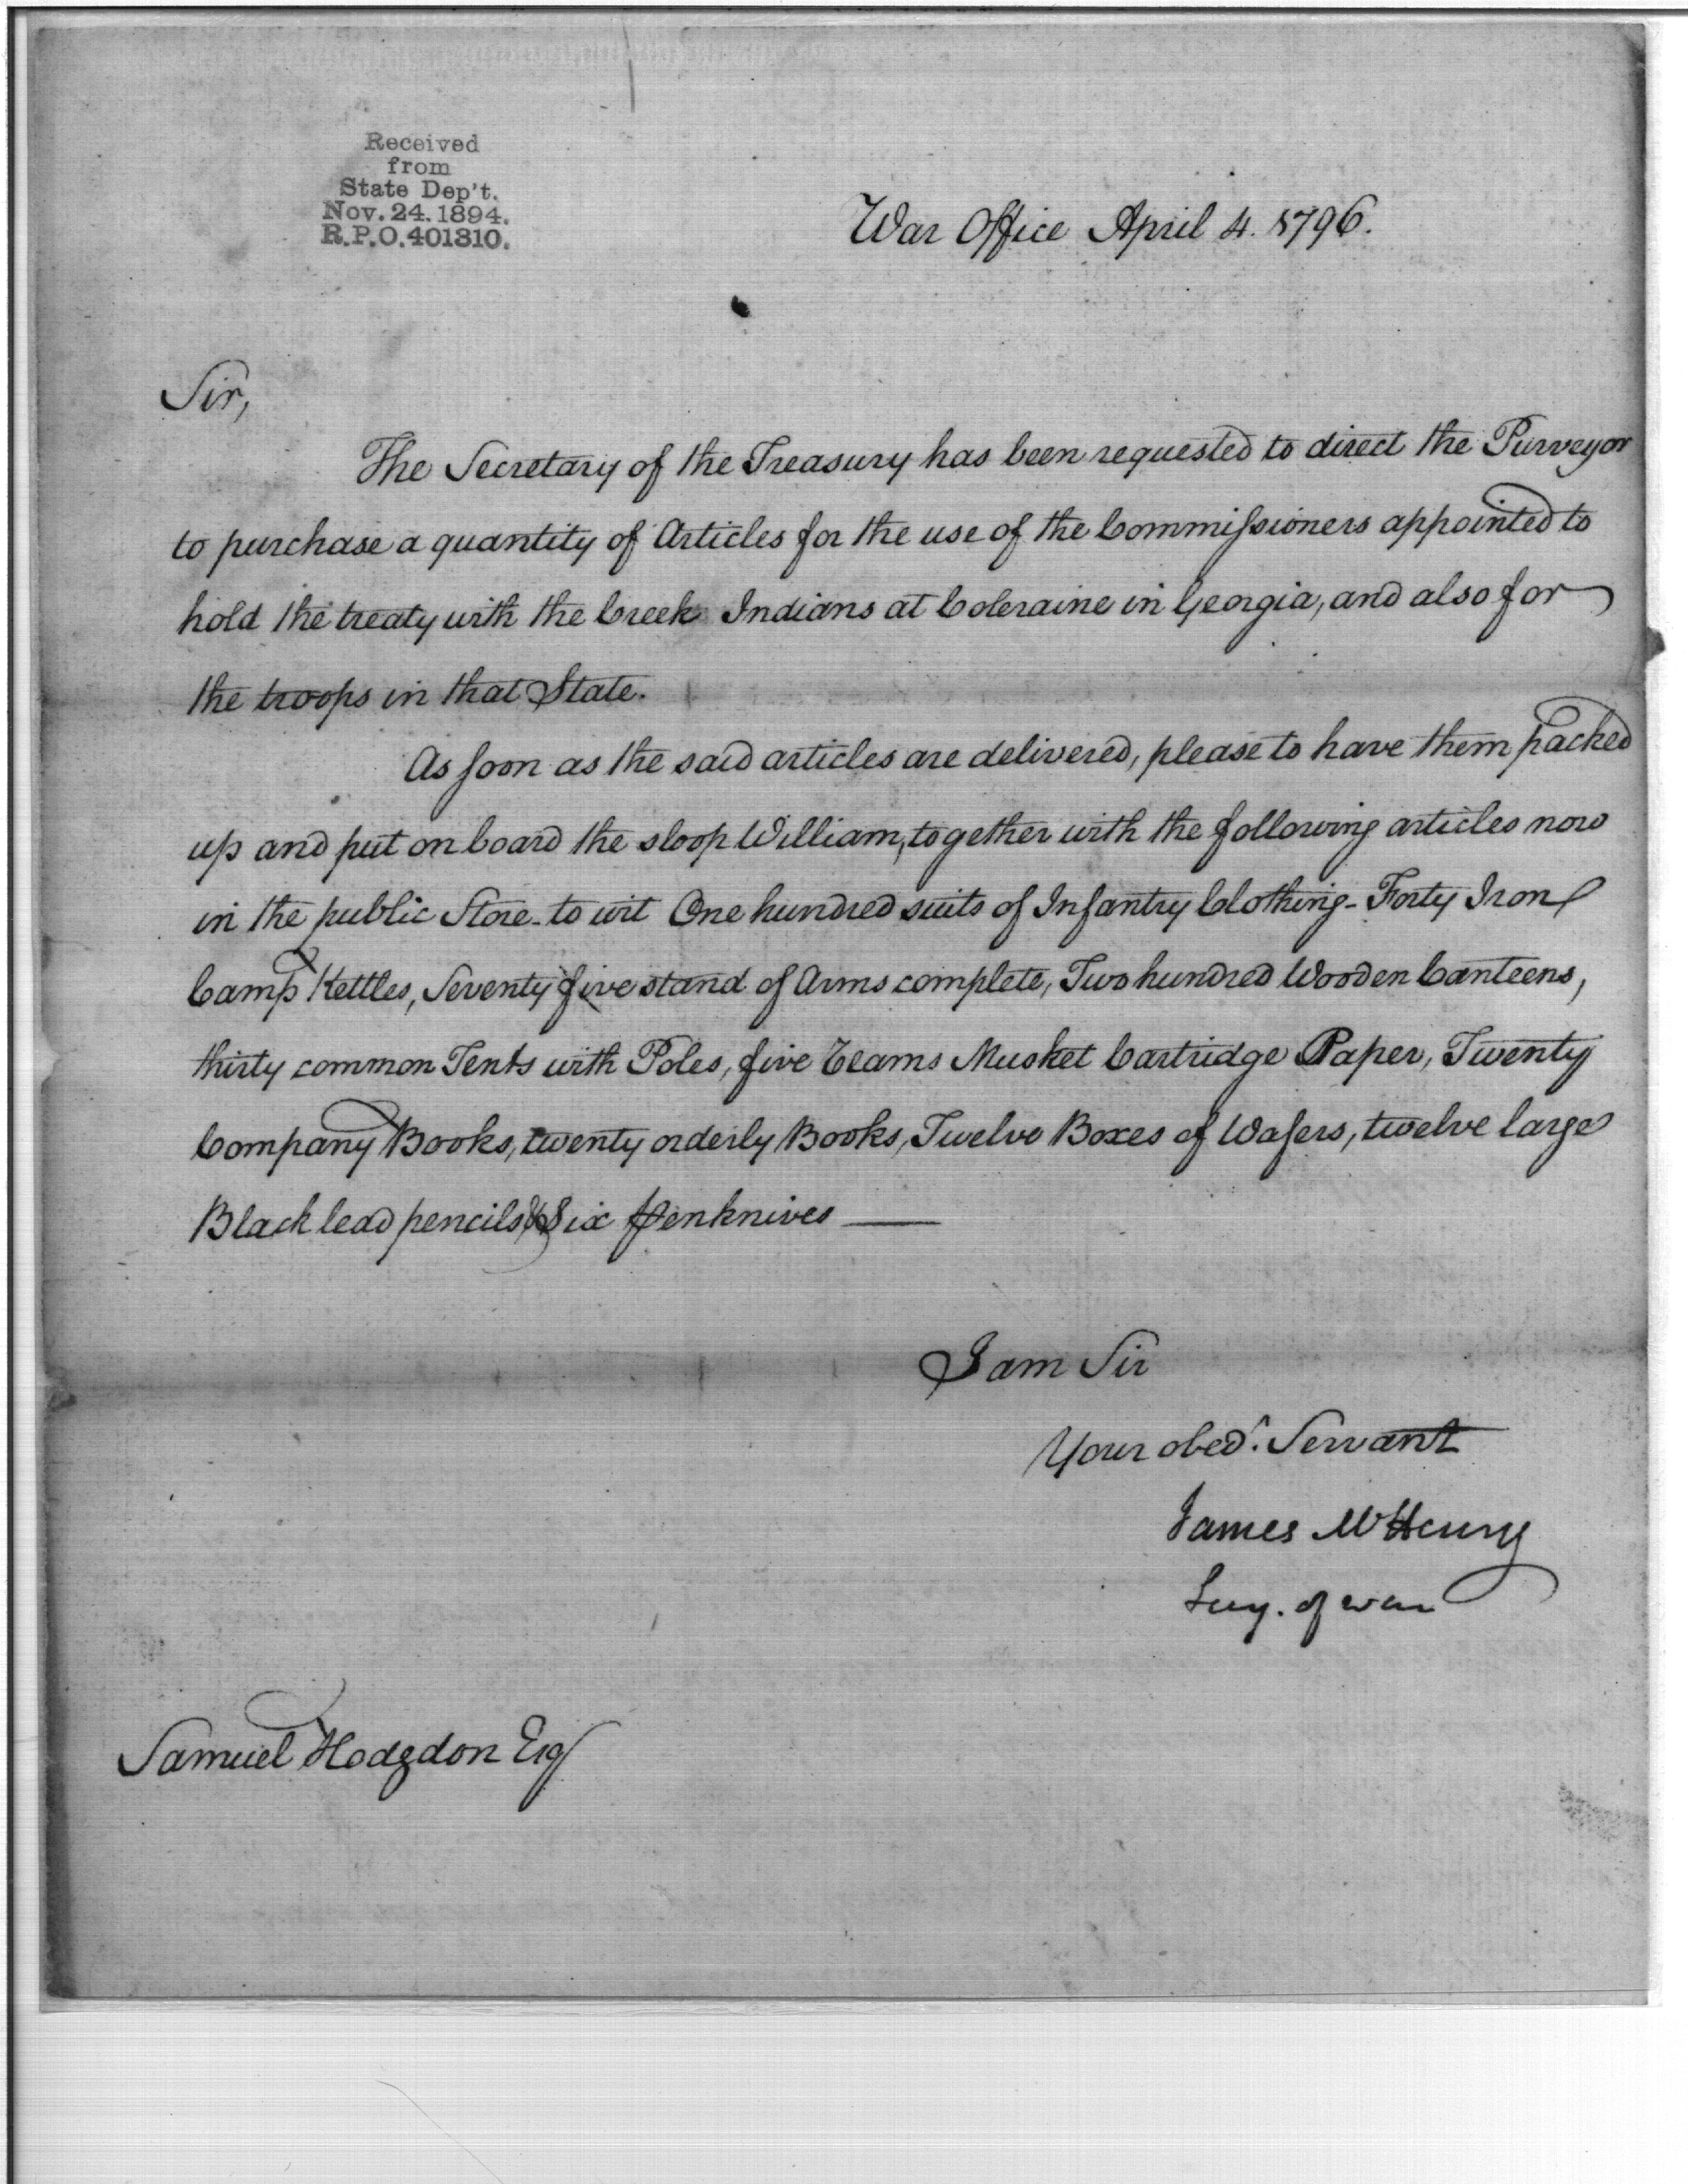 Received
from
State Dep't.
Nov. 24. 1894.
R.P.O. 401310.
War Office April 4. 1796.
Sir,
The Secretary of the Treasury has been requested to direct the Purveyor
to purchase a quantity of Articles for the use of the Commissioners appointed to
hold the treaty with the Creek Indians at Coleraine in Georgia, and also for
the troops in that State.
As soon as the said articles are delivered, please to have them packed
up and put on board the sloop William, together with the following articles now
in the public Store - to wit One hundred suits of Infantry Clothing - Forty Iron
Camp Kettles, Seventy five stand of Arms complete, Two hundred Wooden Canteens,
thirty common Tents with Poles, five Reams Musket Cartridge Paper, Twenty
Company Books, twenty orderly Books, Twelve Boxes of Wafers, twelve large
Black lead pencils & Six penknives
I am Sir
Your obedt. Servant
James McHenry
Secy. of war
Samuel Hodgdon Esq